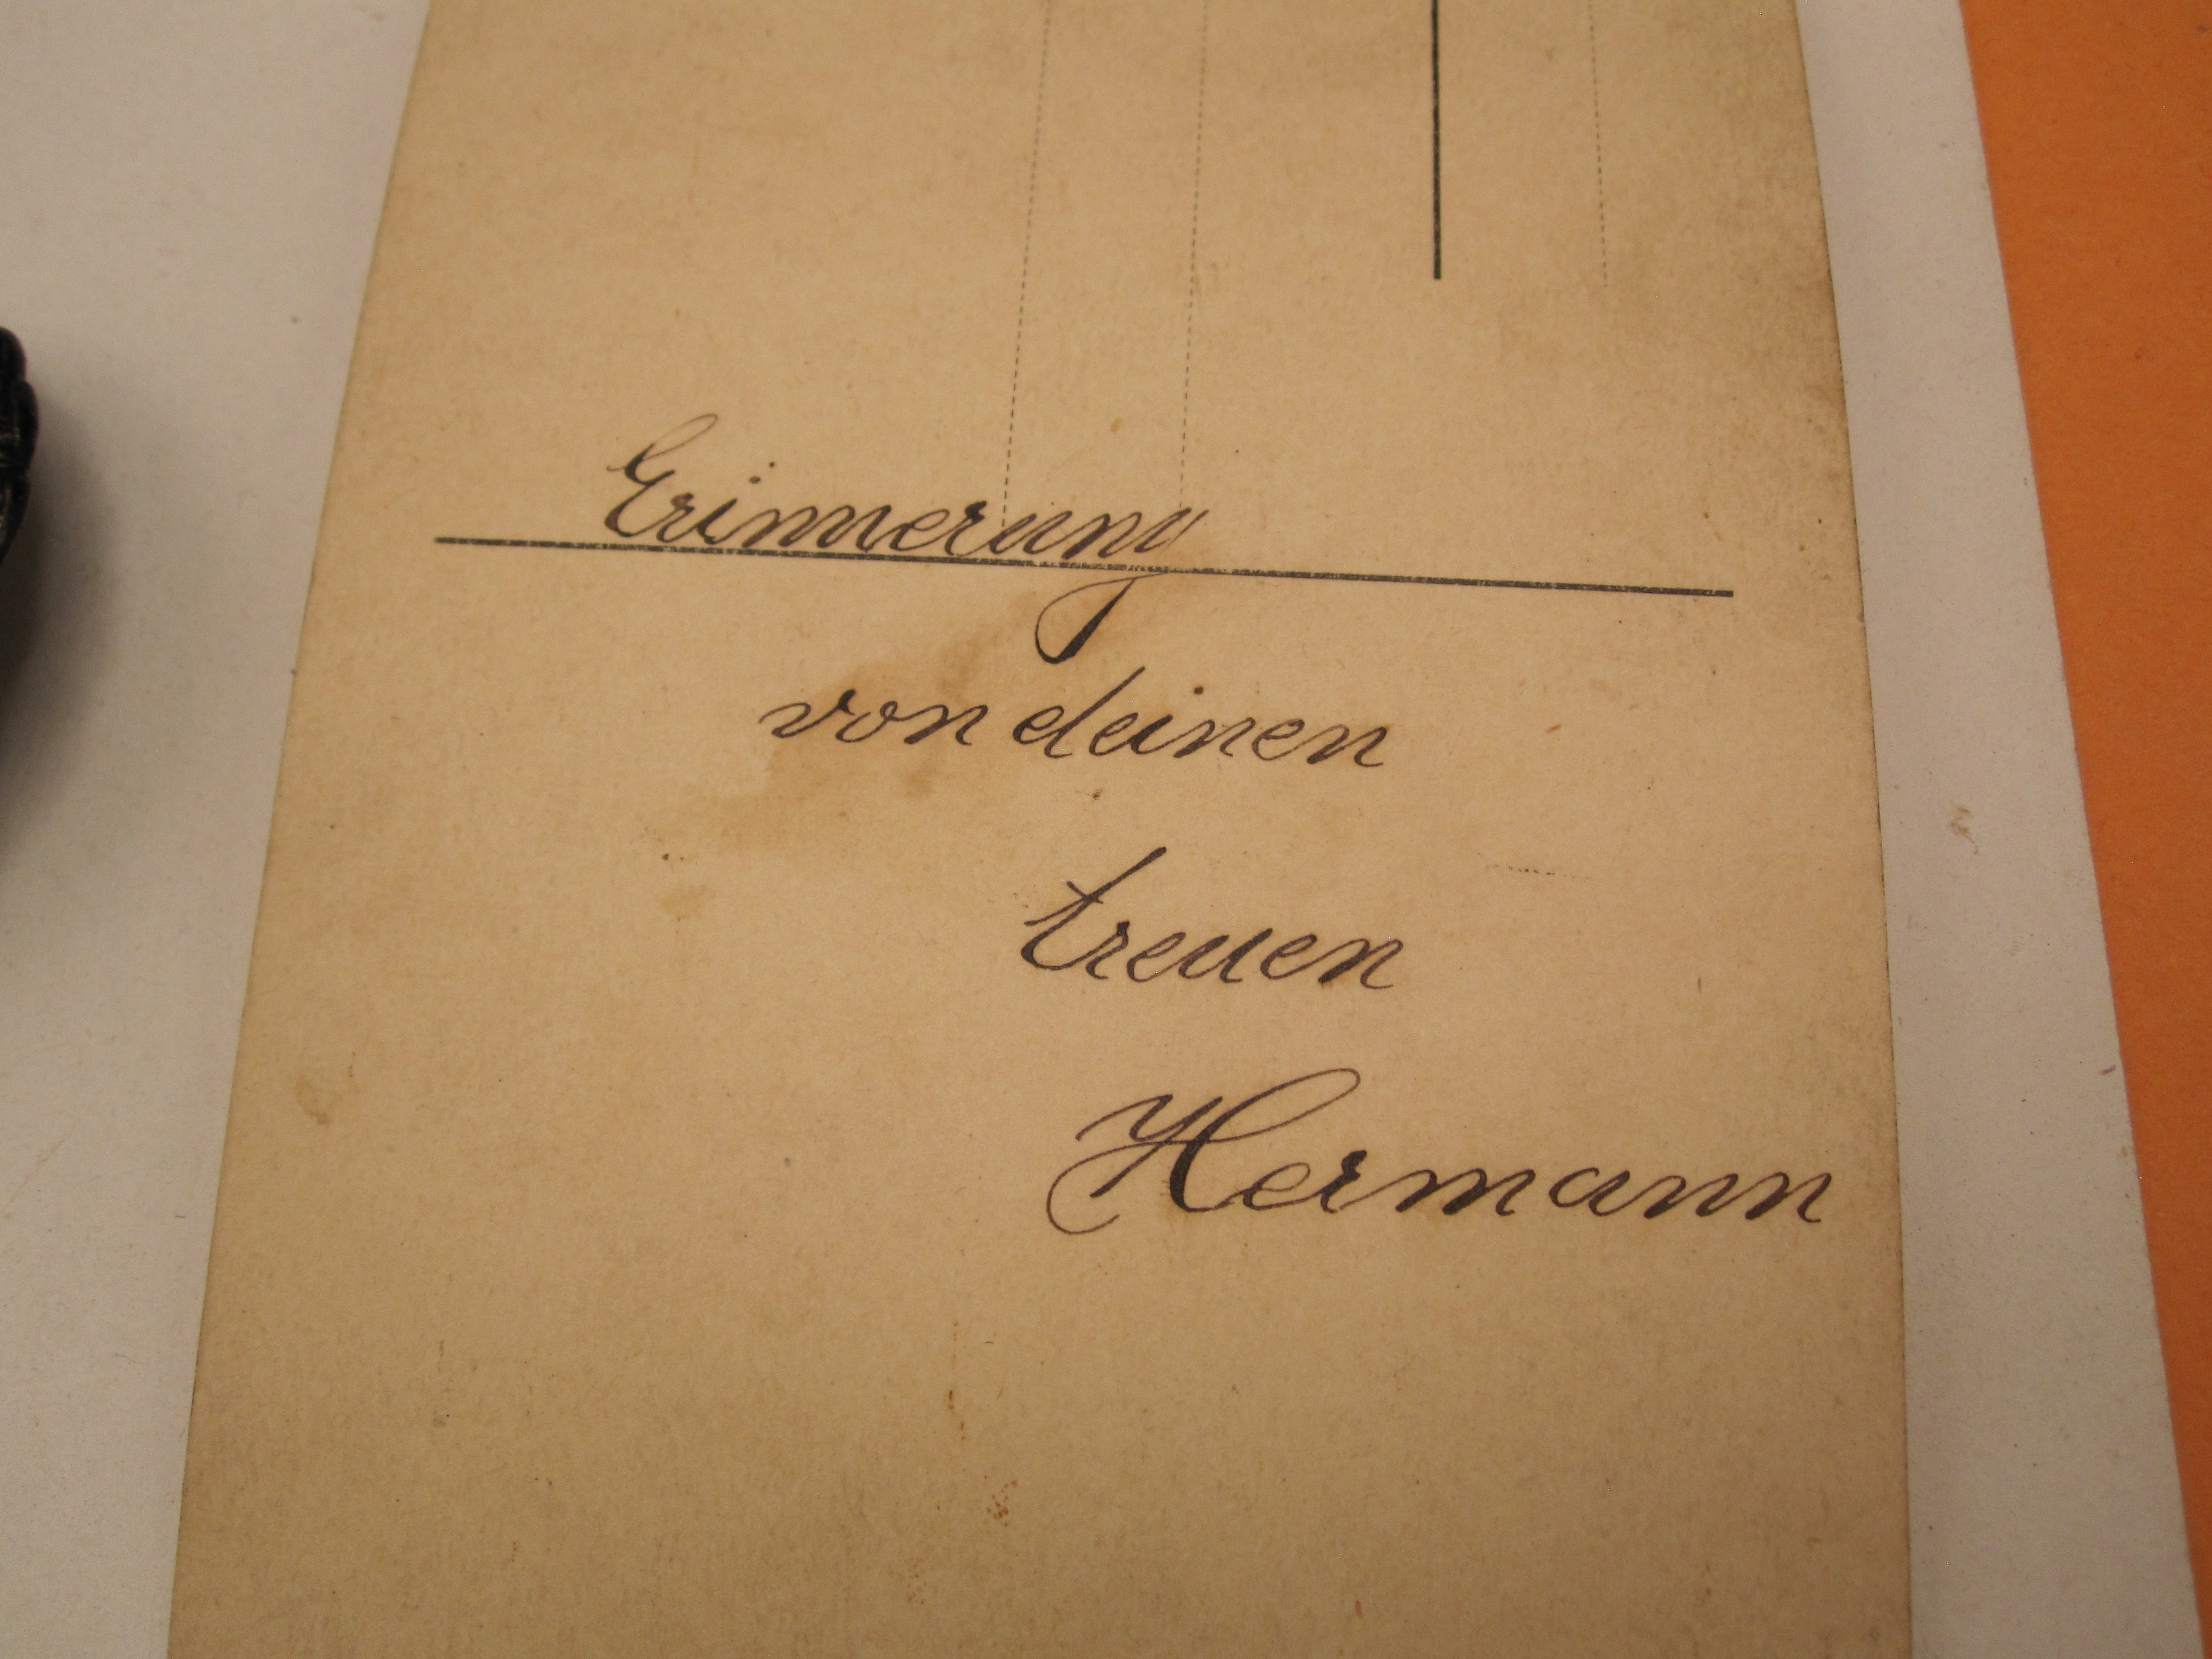 Erinnerung
von deinen
treuen
Hermann